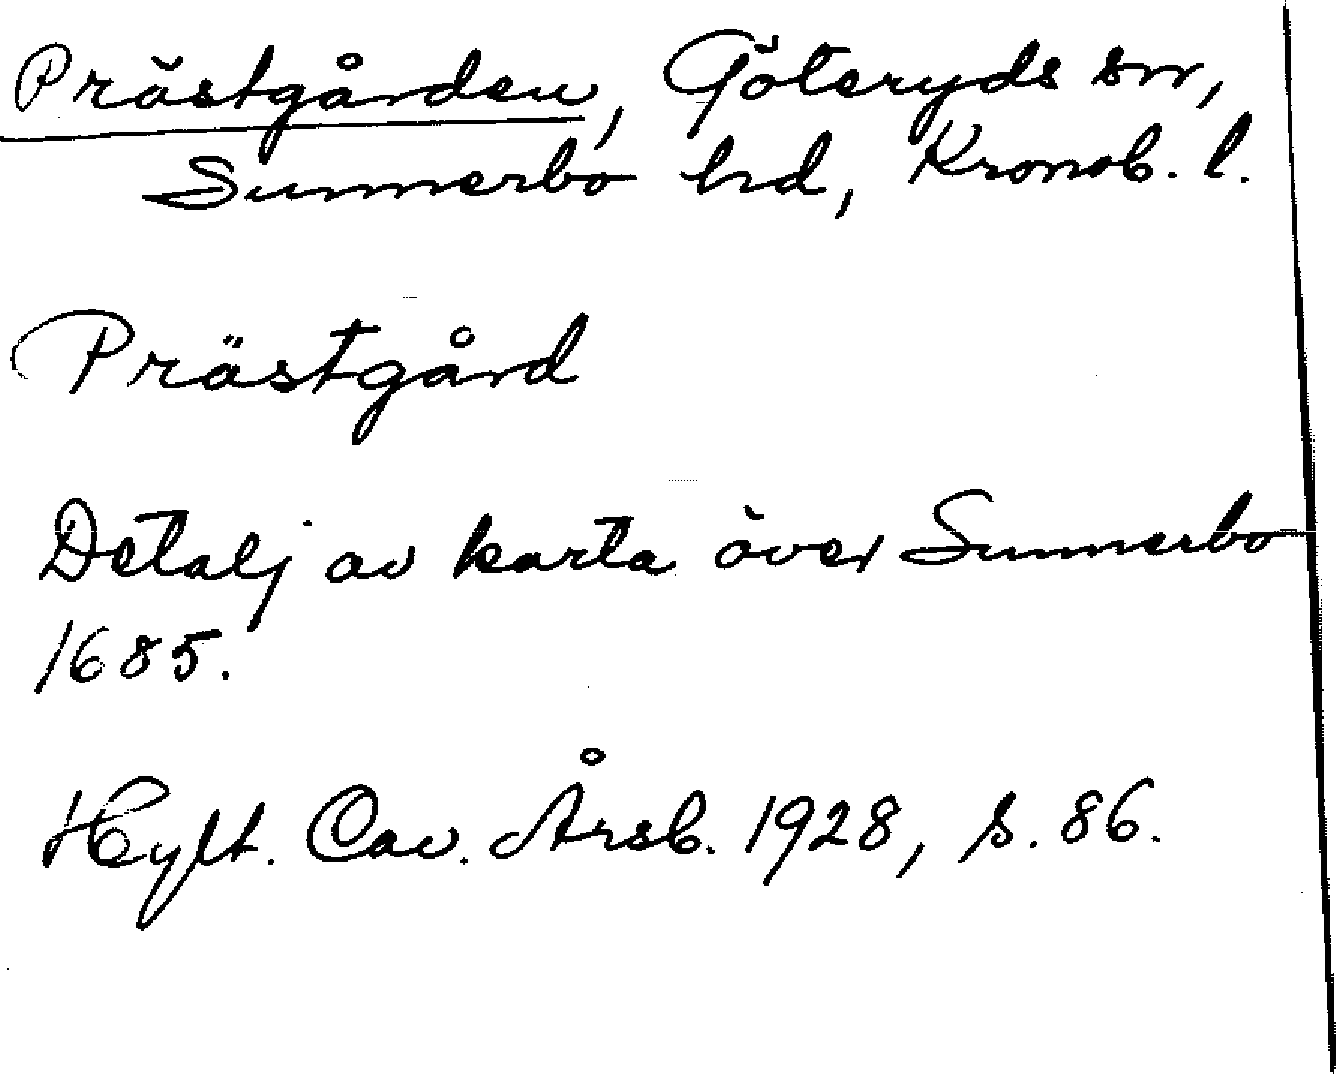 Prästgården, Göteryds sn,
Sunnerbo hd, Kronob. l.
Prästgård
Detalj av karta över Sunnerbo
1685.
Hylt. Cav. Årsb. 1928, s. 86.